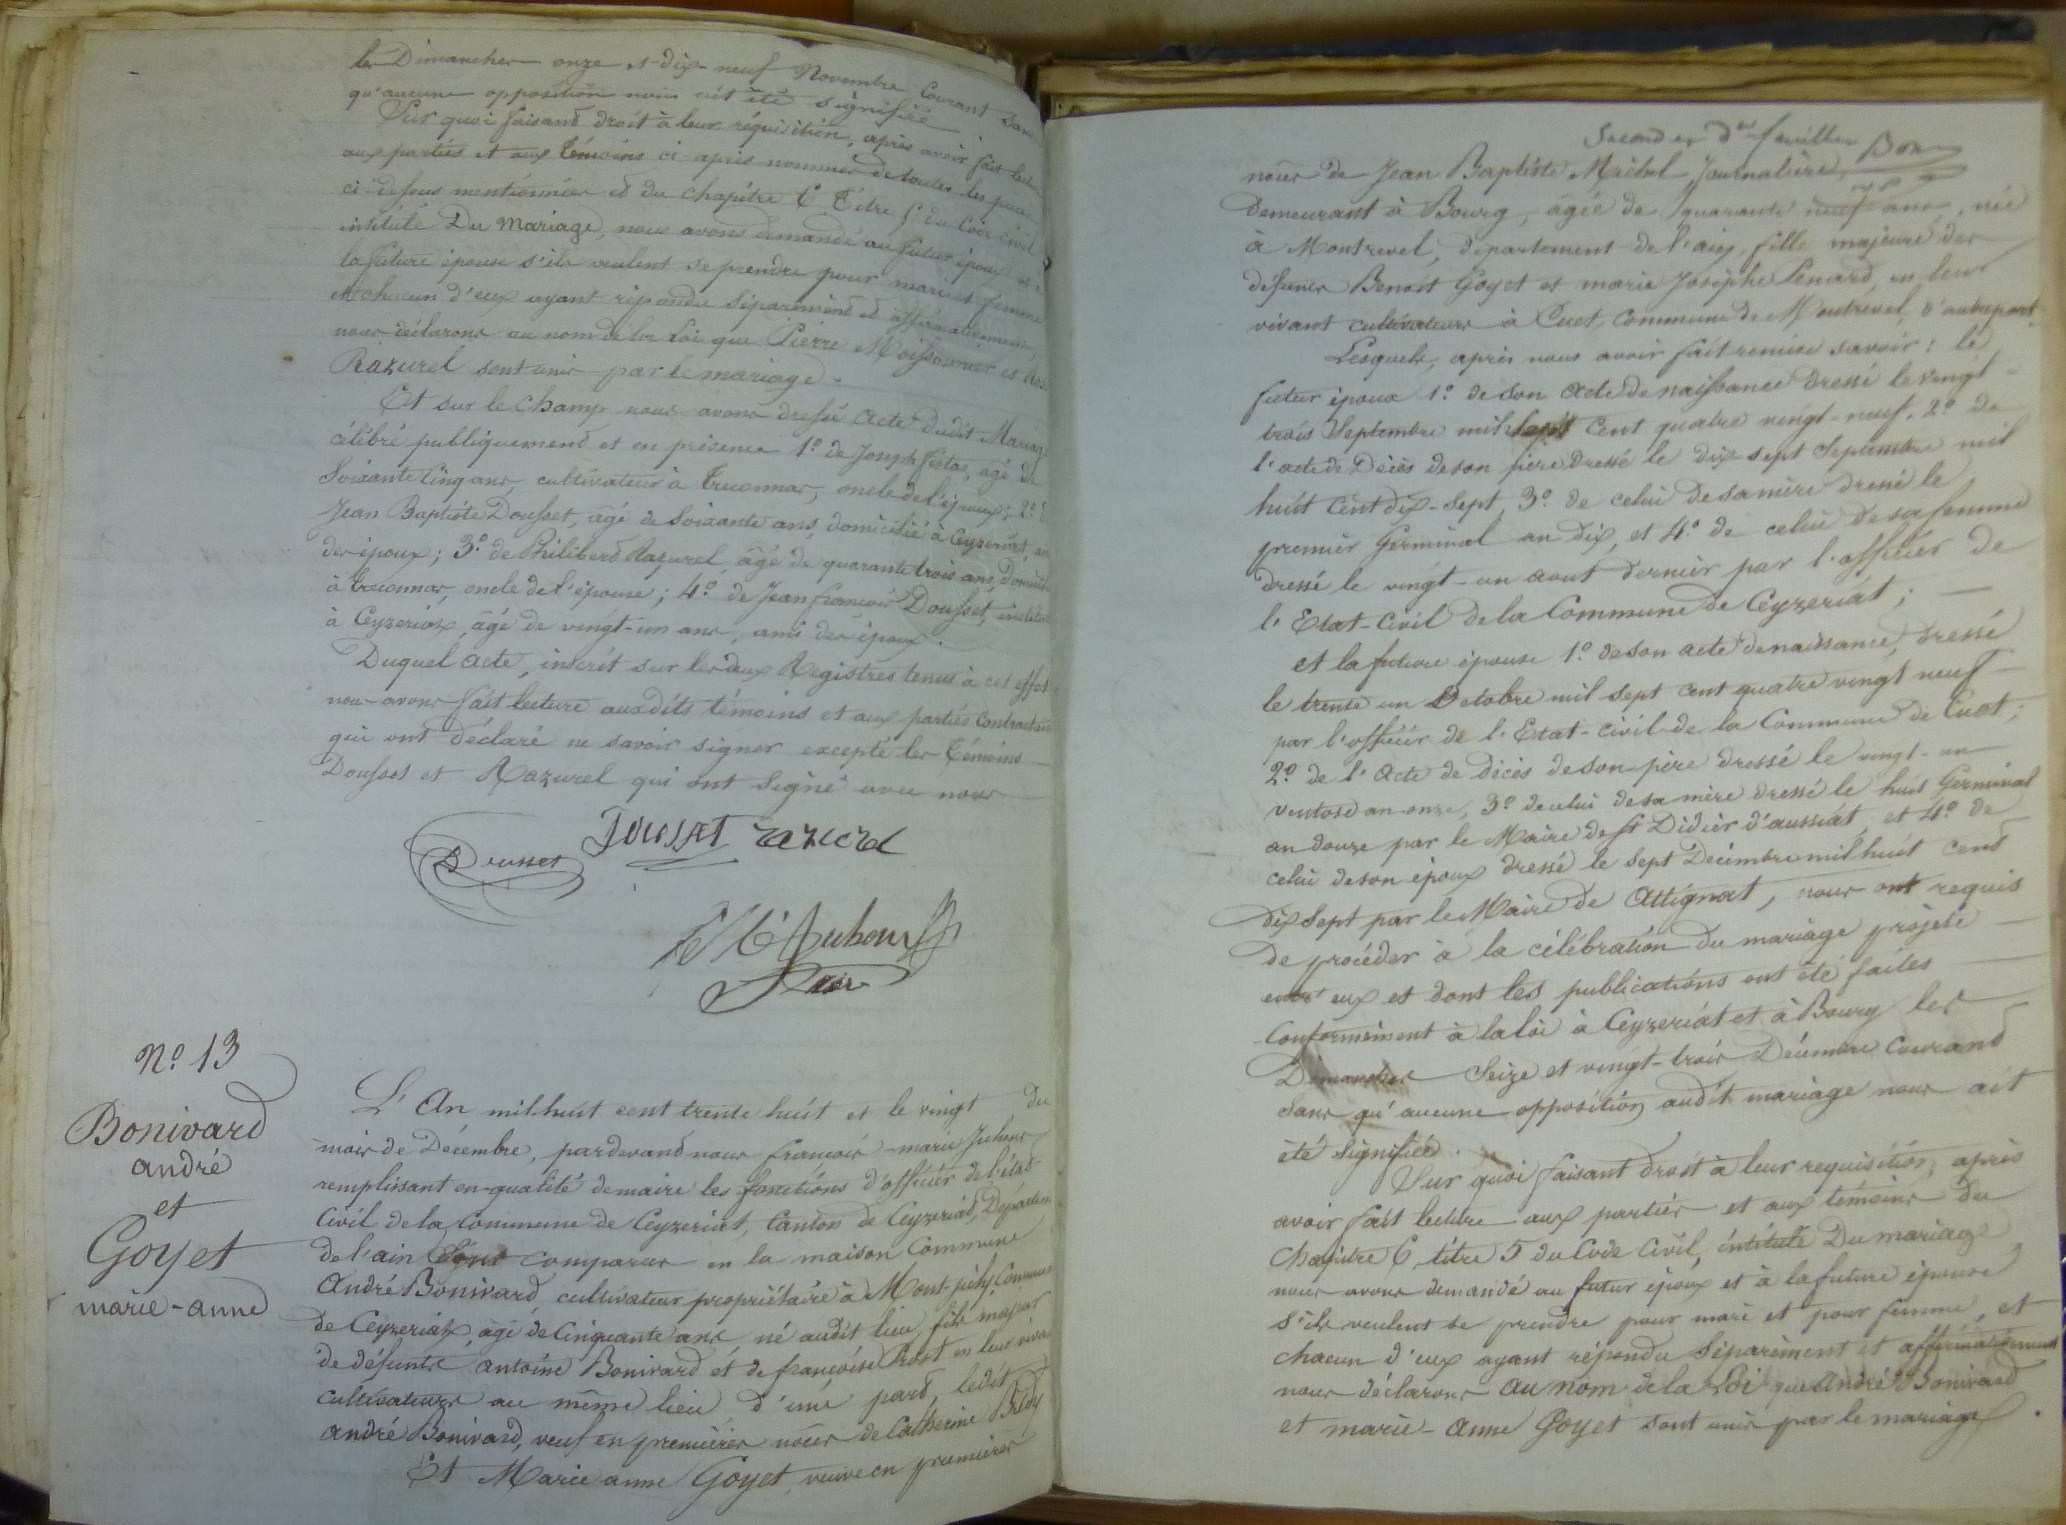 les Dimanches onze et dix-neuf Novembre Courant sans
qu'aucune opposition nous ait été signifiée.
Sur quoi faisant droit à leur réquisition, après avoir fait lecture
aux parties et aux témoins ci-après nommés de toutes les pièces
ci-dessus mentionnées et du chapitre 6 Titre 5 du Code civil
intitulé Du Mariage, nous avons demandé au futur époux et à
la future épouse s'ils veulent se prendre pour mari et femme
et chacun d'eux ayant répondu séparément et affirmativement,
nous déclarons au nom de la Loi que Pierre Moissonnier et
Razurel sont unis par le mariage.
Et sur le champ nous avons dressé acte dudit Mariage
célébré publiquement et en présence 1º de Joseph , âgé de
Soixante Cinq ans, cultivateur à Treconnas, oncle de l'époux; 2º
Jean Baptiste Dousset, âgé de Soixante ans, domicilié à Ceyzeriat, ami
des époux; 3º de Philibert Razurel, âgé de quarante trois ans, domicilié
à Treconnas, oncle de l'épouse; 4º de Jean françois Dousset,
à Ceyzeriat, âgé de vingt-un ans, ami des époux.
Duquel acte, inscrit sur les deux Registres tenus à cet effet
nous avons fait lecture auxdits témoins et aux parties Contractantes
qui ont déclaré ne savoir signer excepté les témoins
Dousset et Razurel qui ont signé avec nous
Dousset Dousset razurel
Juhem
Nº 13
Bonivard
andré
et
Goyet
marie-anne
L'An mil-huit cent trente huit et le vingt du
mois de Décembre, pardevant nous françois-marie
remplissant en qualité de maire les fonctions d'officier de l'état
Civil de la Commune de Ceyzeriat, Canton de Ceyzeriat, Département
de l'ain sont comparus en la maison Commune
André Bonivard, cultivateur propriétaire à Mont-july, Commune
de Ceyzeriat, âgé de Cinquante ans né audit lieu, fils majeur
de défunts antoine Bonivard et de françoise Prost en leur vivant
cultivateurs au même lieu d'une part, ledit
andré Bonivard, veuf en premières noces de Catherine
Et Marie anne Goyet, veuve en premières
Second et dernier feuillet
noces de Jean Baptiste Michel Journalière,
Demeurant à Bourg, âgée de quarante neuf ans, née
à Montrevel, département de l'ain, fille majeure des
défunts Benoit Goyet et marie Josephe Penard, en leur
vivant cultivateurs à Cuet, Commune de Montrevel, d'autre part
Lesquels, après nous avoir fait remise savoir: le
futur époux 1º de son acte de naissance dressé le vingt-
trois Septembre mil sept Cent quatre vingt-neuf. 2º de
l'acte de Décès de son père Dressé le dix sept Septembre mil
huit Cent dix-sept, 3º de celui de sa mère dressé le
premier Germinal an dix, et 4º de celui de sa femme
dressé le vingt-un aout dernier par l'officier de
l'Etat-Civil de la Commune de Ceyzeriat;
et la future épouse 1º de son acte de naissance, dressé
le trente un Octobre mil sept cent quatre vingt neuf
par l'officier de l'Etat-civil de la Commune de Cuet;
2º de l'Acte de décès de son père dressé le vingt-un
ventose an onze, 3º de celui de sa mère dressé le huit Germinal
an douze par le Maire de St Didier d'aussiat, et 4º de
celui de son époux dressé le Sept Decembre mil huit cent
dix Sept par le Maire de Attignat, nous ont requis
de procéder à la célébration du mariage projeté
entr'eux et dont les publications ont été faites
Conformément à la loi à Ceyzeriat et à Bourg les
Dimanches Seize et vingt-trois Décembre Courant
Sans qu'aucune opposition audit mariage nous ait
été signifiée.
Sur quoi faisant droit à leur requisition, après
avoir fait lecture aux parties et aux témoins du
Chapitre 6, titre 5 du Code Civil, intitulé Du mariage
nous avons demandé au futur époux et à la future épouse
s'ils veulent se prendre pour mari et pour femme, et
chacun d'eux ayant répondu séparément et affirmativement
nous déclarons au nom de la Loi que André Bonivard
et marie-Anne Goyet sont unis par le mariage.